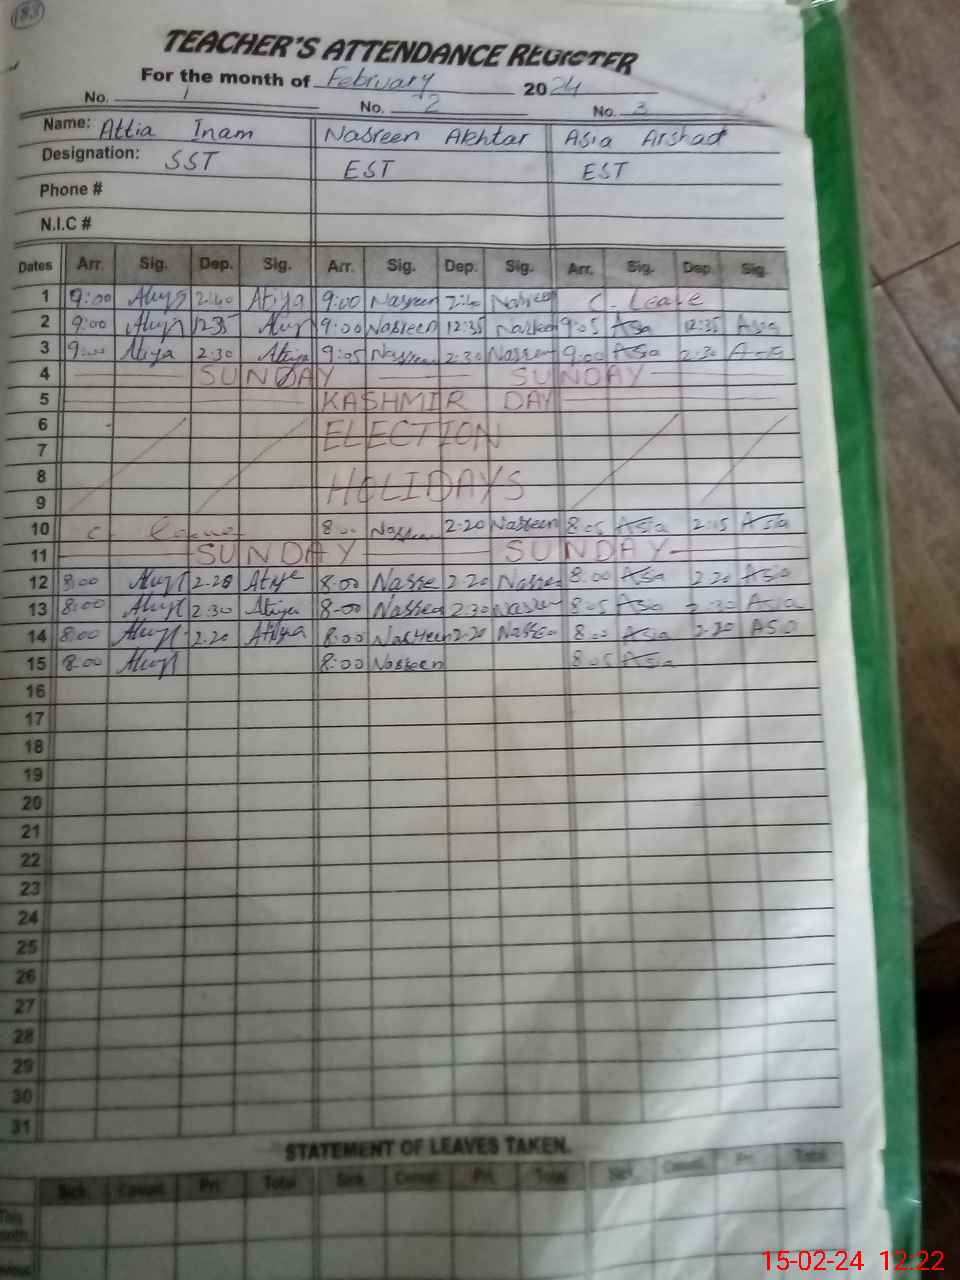 183
TEACHER'S ATTENDANCE REGISTER
For the month of February 2024
No. 1 No. 2 No. 3
Name: Attia Inam Nasreen Akhtar Asia Arshad
Designation: SST EST EST
Phone #
N.I.C #
Dates Arr. Sig. Dep. Sig. Arr. Sig. Dep. Sig. Arr. Sig. Dep. Sig.
1 9:00 2:40 Atiya 9:00 Nasreen 2:40 Nasreen C. Leave
2 9:00 12:35 9:00 Nasreen 12:35 Nasreen 9:05 Asia 12:35 Asia
3 9:00 Atiya 2:30 Atiya 9:05 Nasreen 2:30 Nasreen 9:00 Asia 2:30 Asia
4 SUNDAY SUNDAY
5 KASHMIR DAY
6 ELECTION
7
8 HOLIDAYS
9
10 C leave 8:00 Nasreen 2:20 Nasreen 8:05 Asia 2:15 Asia
11 SUNDAY SUNDAY
12 8:00 2:20 Atiya 8:00 Nasree 2:20 Nasreen 8:00 Asia 2:20 Asia
13 8:00 2:30 Atiya 8:00 Nasreen 2:30 Nasreen 8:05 Asia 2:30 Asia
14 8:00 2:20 Atiya 8:00 Nasreen 2:20 Nasreen 8:00 Asia 2:20 Asia
15 8:00 8:00 Nasreen 8:05 Asia
16
17
18
19
20
21
22
23
24
25
26
27
28
29
30
31
STATEMENT OF LEAVES TAKEN.
Sick. Casual. Pri. Total Sick. Casual. Pri. Total Sick. Casual. Pri. Total
This
month
15-02-24 12:22